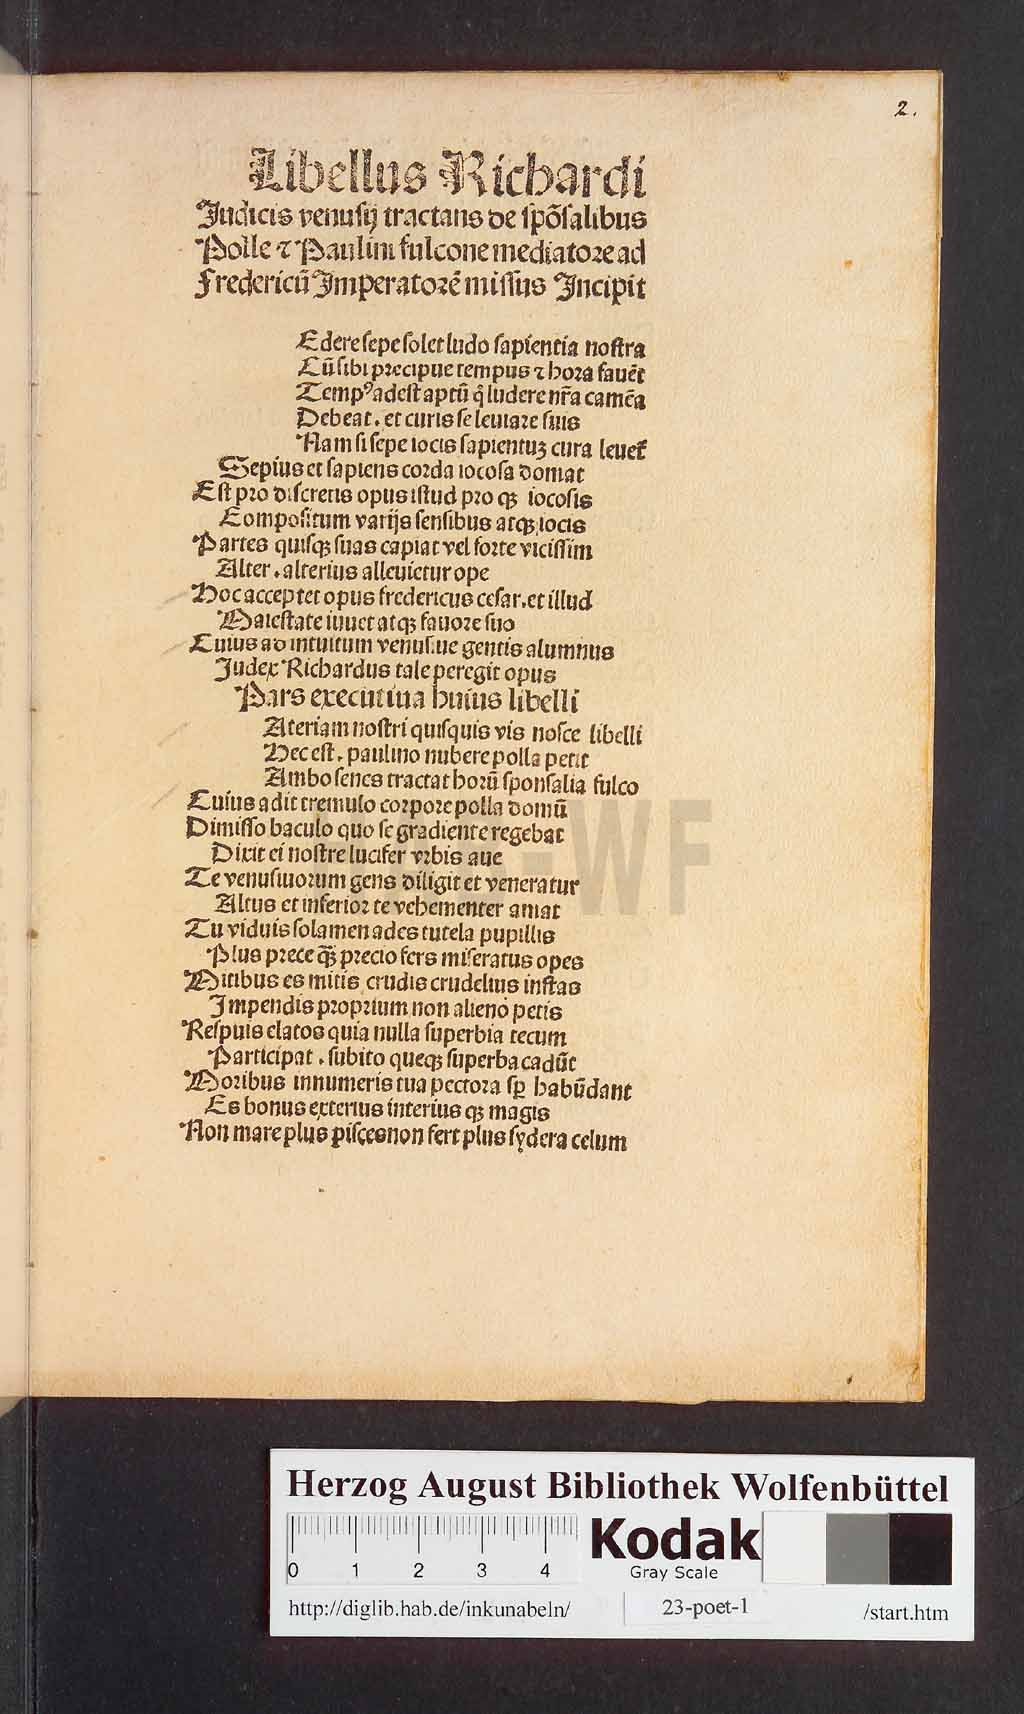 2.
Libellus Richardi
Judicis venusij tractans de spōsalibus
Polle ⁊ Paulini fulcone mediatore ad
Fredericū Imperatorē missus Incipit
Edere sepe solet ludo sapientia nostra
Cū sibi precipue tempus ⁊ hora favēt
Tempꝰ adest aptū q̄ ludere nr̄a camēa
Debeat. et curis se leuiare suis
Nam si sepe iocis sapientuꝫ cura leuet̄
Sepius et sapiens corda iocosa domat
Est pro discretis opus istud pro qꝫ iocosis
Compositum varijs sensibus atqꝫ iocis
Partes quisqꝫ suas capiat vel forte vicissim
Alter. alterius alleuietur ope
Hoc acceptet opus fredericus cesar. et illud
Maiestate iuuet atqꝫ fauore suo
Cuius ad intuitum venusine gentis alumnus
Judex Richardus tale peregit opus
Pars executiua huius libelli
Ateriam nostri quisquis vis nosce libelli
Hec est. paulino nubere polla petit
Ambo senes tractat horū sponsalia fulco
Cuius adit tremulo corpore polla domū
Dimisso baculo quo se gradiente regebat
Dixit ei nostre lucifer vrbis aue
Te venusiuorum gens diligit et veneratur
Altus et inferior te vehementer amat
Tu viduis solamen ades tutela pupillis
Plus prece qꝫ̄ precio fers miseratus opes
Mitibus es mitis crudis crudelius instas
Impendis proprium non alieno petis
Respuis elatos quia nulla superbia tecum
Participat. subito queqꝫ superba cadūt
Moribus innumeris tua pectora sꝑ habūdant
Es bonus exterius interius qꝫ magis
Non mare plus pisces non fert plus sydera celum
HAB-WF
Herzog August Bibliothek Wolfenbüttel
0 1 2 3 4
Kodak
Gray Scale
http://diglib.hab.de/inkunabeln/ 23-poet-1 /start.htm